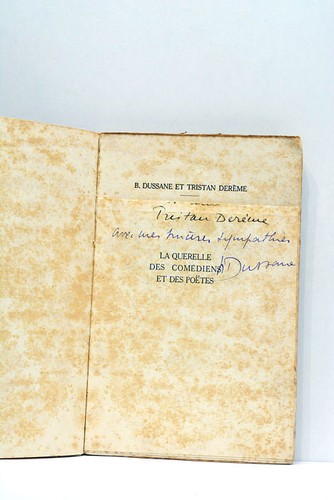 B. DUSSANE ET TRISTAN DERÈME
Tristan Derème
avec mes sincères sympathies
LA QUERELLE
DES COMÉDIENS
ET DES POËTES
Dussane